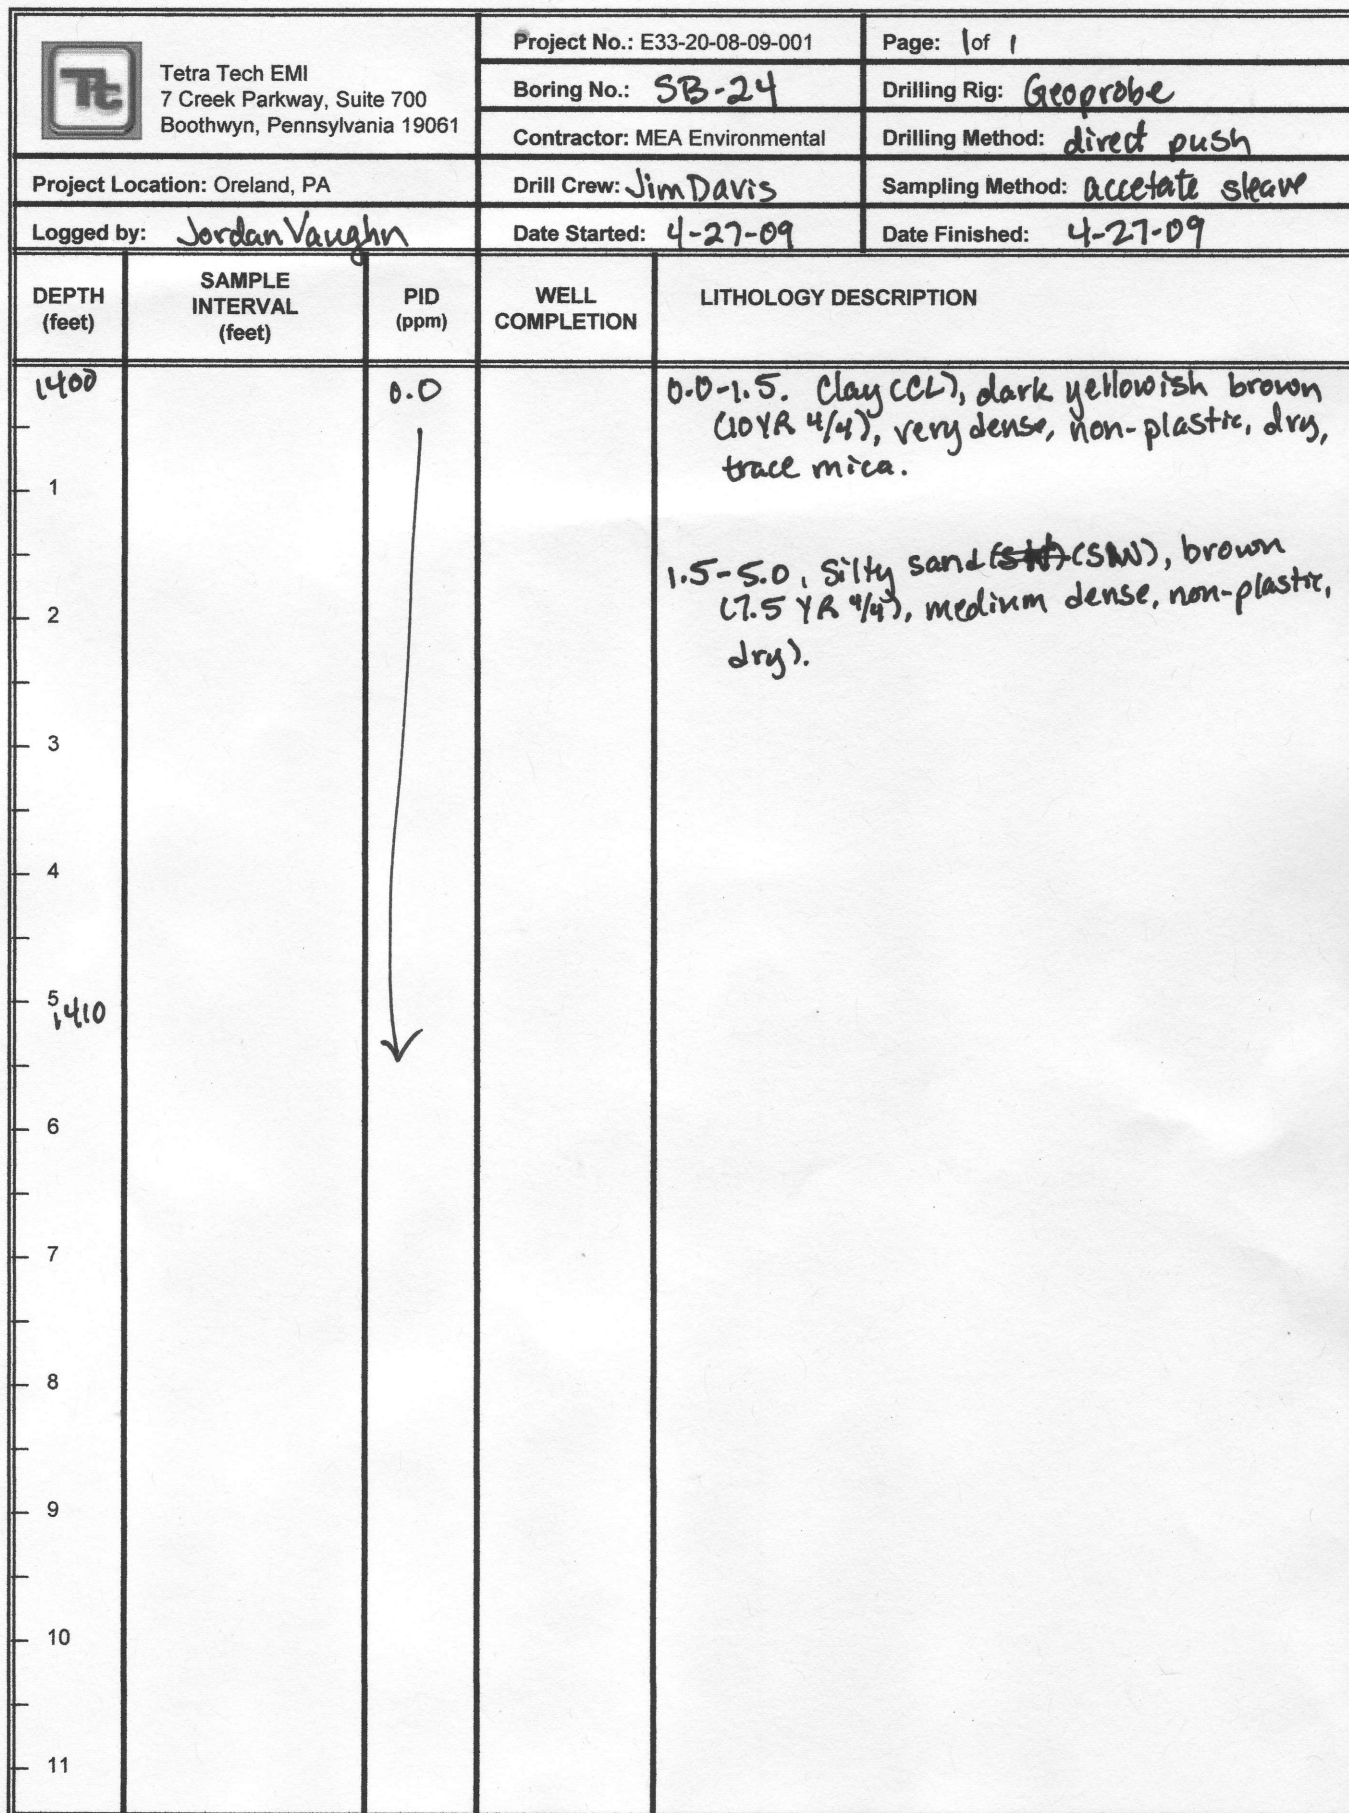 Tt
Tetra Tech EMI
7 Creek Parkway, Suite 700
Boothwyn, Pennsylvania 19061
Project No.: E33-20-08-09-001
Page: 1 of 1
Boring No.: SB-24
Drilling Rig: Geoprobe
Contractor: MEA Environmental
Drilling Method: direct push
Project Location: Oreland, PA
Drill Crew: Jim Davis
Sampling Method: accetate sleave
Logged by: Jordan Vaughn
Date Started: 4-27-09
Date Finished: 4-27-09
DEPTH
(feet)
SAMPLE
INTERVAL
(feet)
PID
(ppm)
WELL
COMPLETION
LITHOLOGY DESCRIPTION
1400
0.0
0.0-1.5. Clay (CL), dark yellowish brown
(10YR 4/4), very dense, non-plastic, dry,
trace mica.
1
1.5-5.0, Silty sand (SW), brown
(7.5 YR 4/4), medium dense, non-plastic,
2
dry).
3
4
5
1410
6
7
8
9
10
11